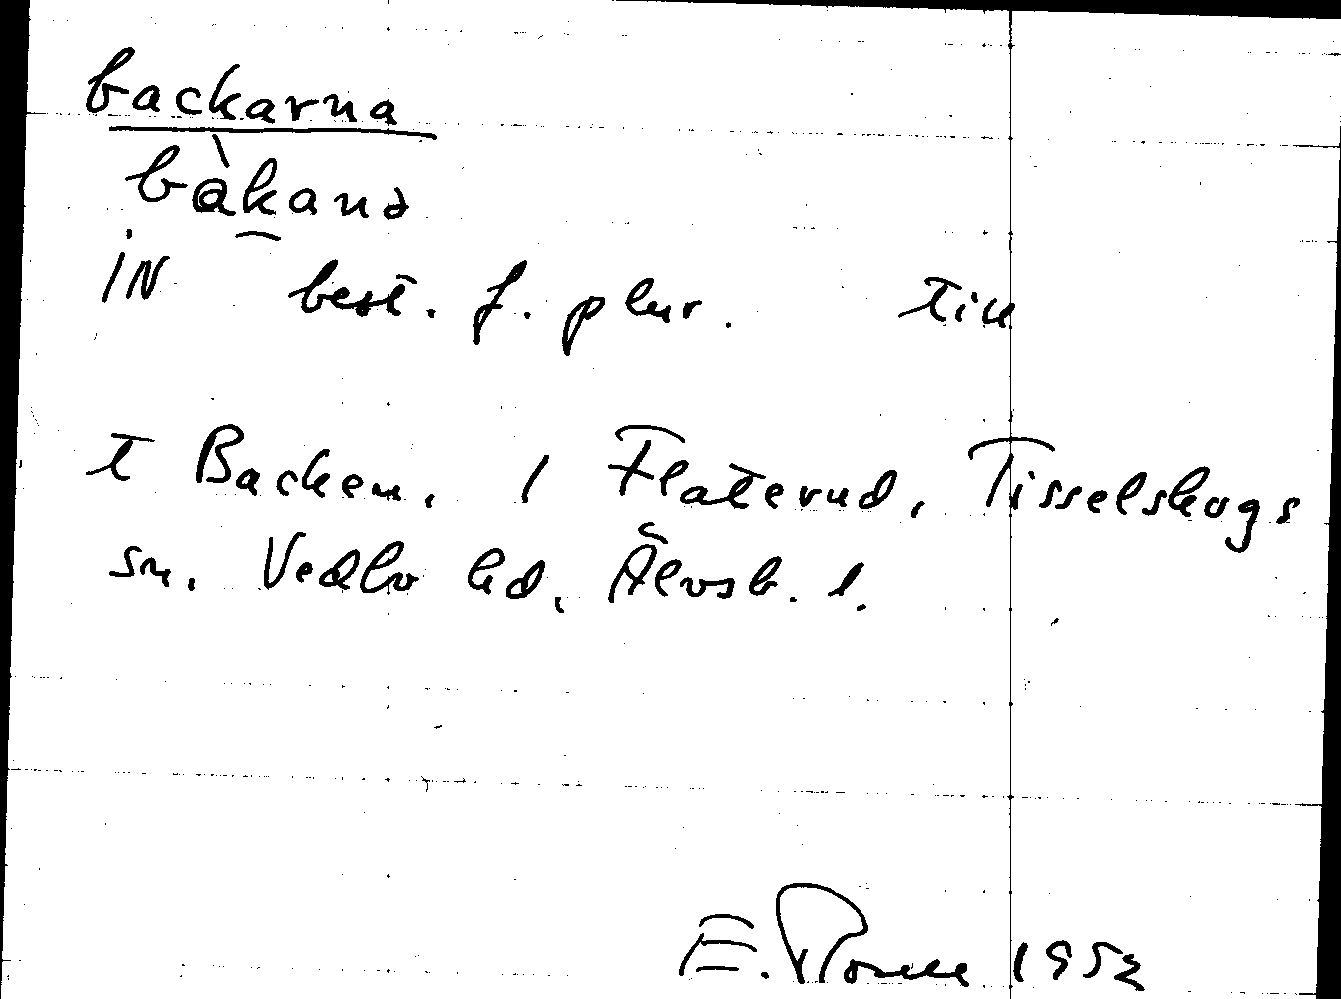 backarna
bàkanə
IN best. f. plur. till
t Backen, 1 Flaterud, Tisselskogs
sn. Vedbo hd, Älvsb. l.
E. 1952